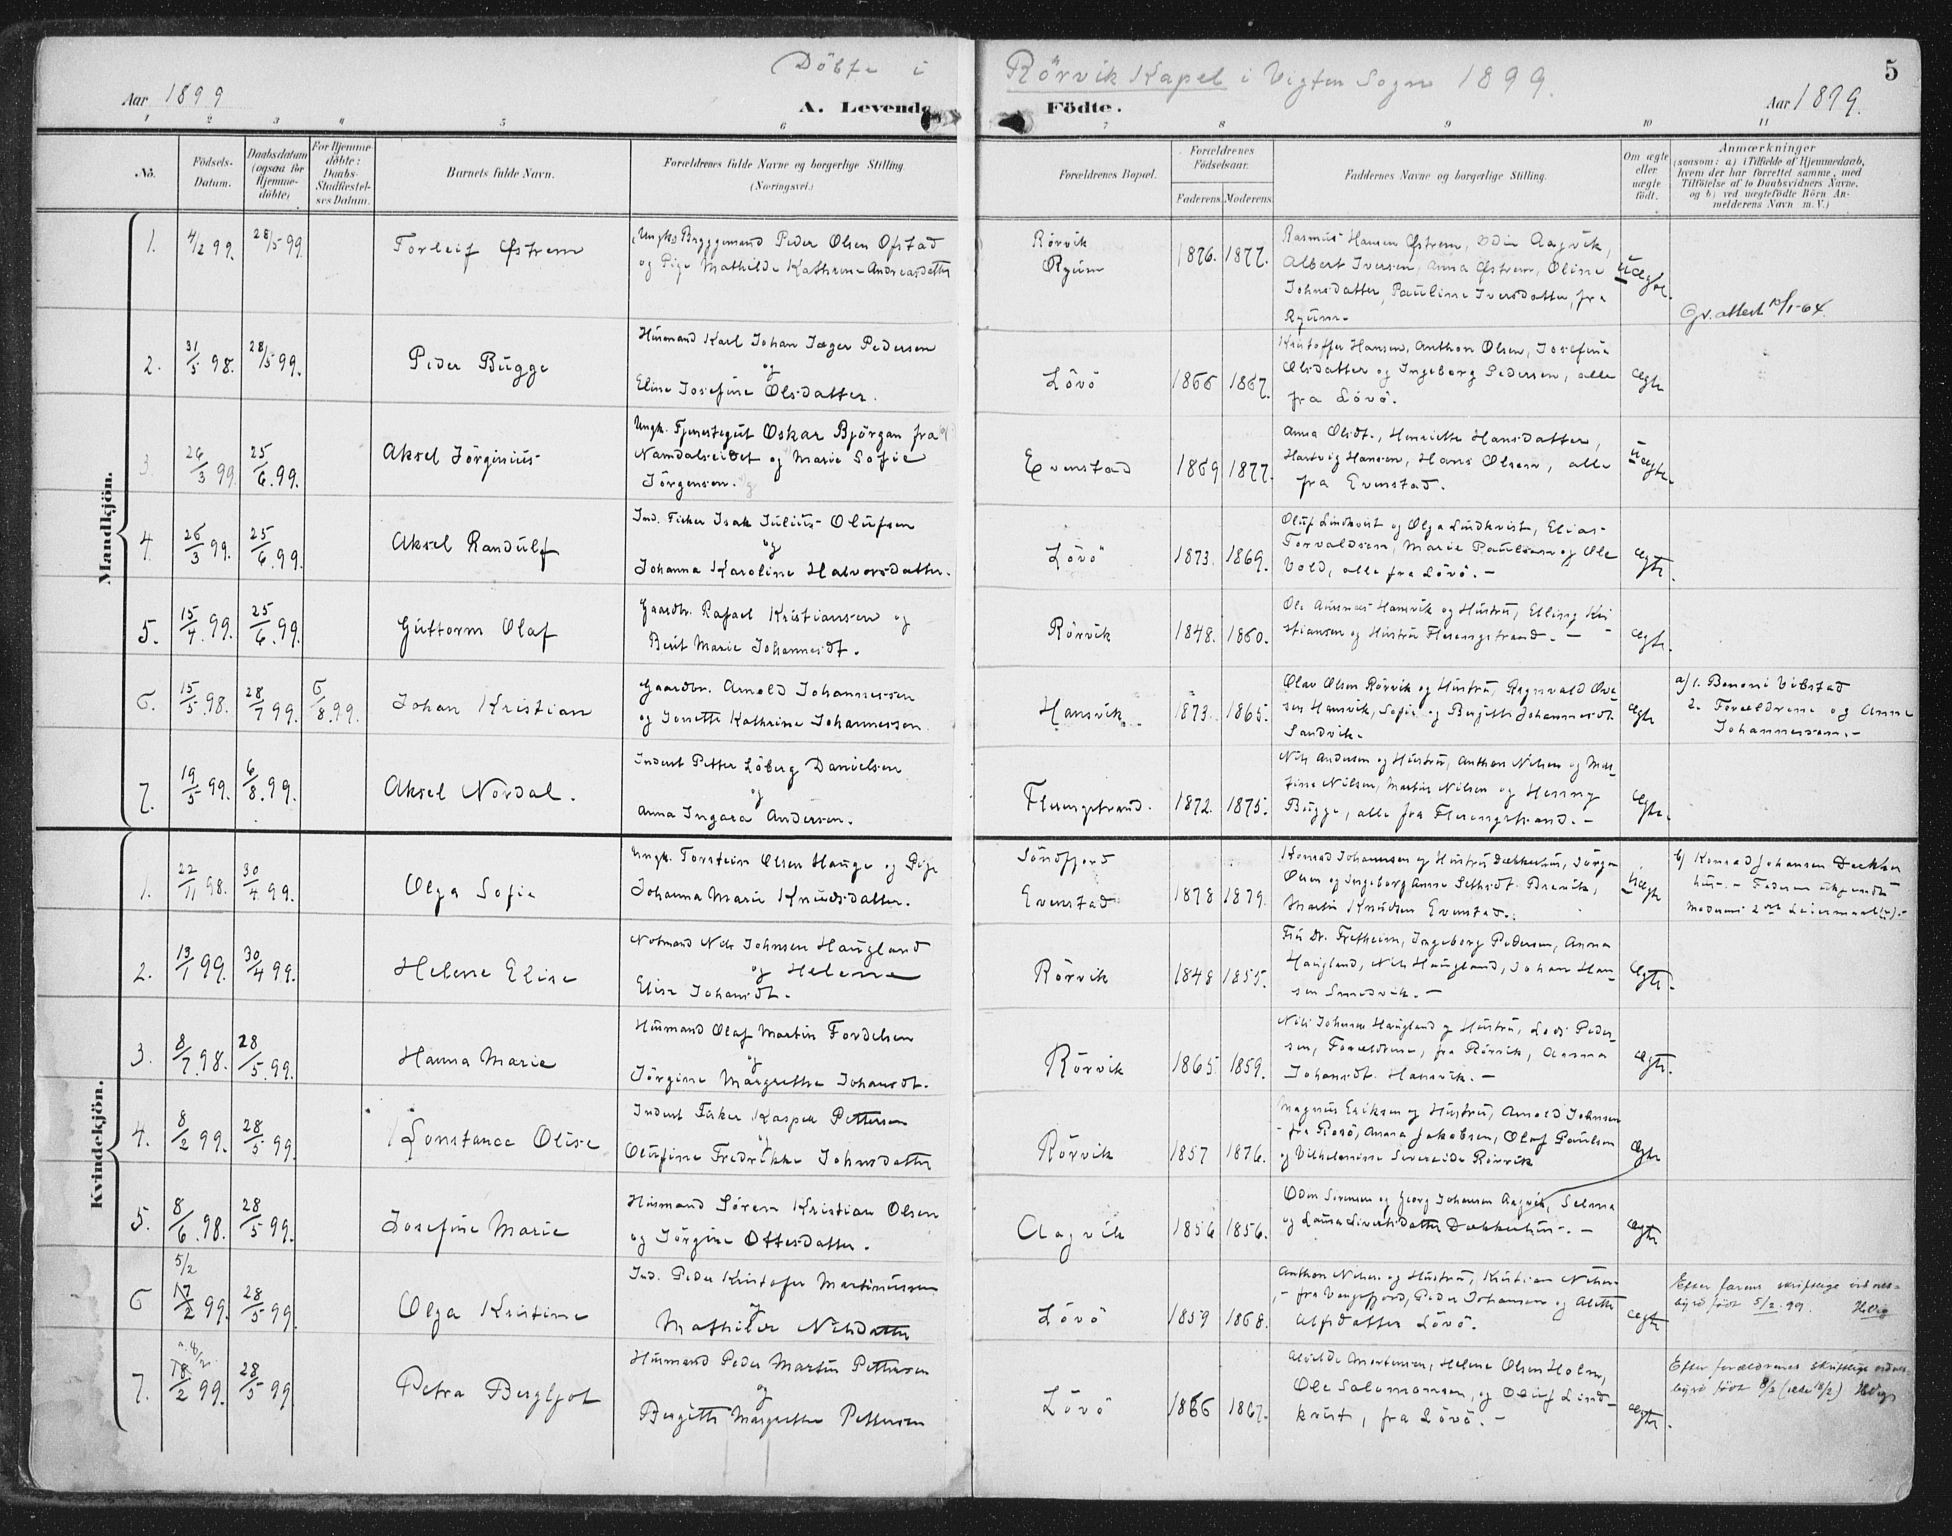 Döbte i Rörvik Kapel i Vigten Sogn 1899.
5
Aar 1899
A. Levende Födte.
Aar 1899.
1 2 3 4 5 6 7 8 9 10 11
No.
Födsels-
Datum.
Daabsdatum
(ogsaa for
Hjemme-
döbte)
For Hjemme-
döbte:
Daabs-
Stadfæstel-
ses Datum.
Barnets fulde Navn.
Forældrenes fulde Navne og borgerlige Stilling
(Næringsvei.)
Forældrenes Bopæl.
Forældrenes
Födselsaar.
Faderens. Moderens.
Faddernes Navne og borgerlige Stilling.
Om ægte
eller
uægte
födt.
Anmærkninger
(saasom: a) i Tilfælde af Hjemmedaab,
hvem der har forrettet samme, med
Tilföielse af to Daabsvidners Navne,
og b) ved uægtefödte Börn An-
melderens Navn m. V.)
Mandkjön.
1. 4/2 99. 28/5 99. Torleif Østrem
Ungk. Bryggemand Peder Olsen Ofstad
og Pige Mathilde Kathrine Andreasdatter
Rörvik
Ryum
1876. 1877.
Rasmus Hansen Østrem, Odin Aagvik,
Albert Iversen, Anna Østrem, Oline
Johnsdatter, Pauline Iversdatter, fra
Ryum.
Uægte.
Gv. attest 10/1-64.
2. 31/5 98. 28/5 99. Peder Bugge
Husmand Karl Johan Jæger Pedersen
og
Elise Josefine Olsdatter.
Lövö
1866 1867.
Kristoffer Hansen, Anthon Olsen, Josefine
Olsdatter og Ingeborg Pedersen, alle
fra Lövö.
Ægte
3. 26/3 99. 25/6. 99. Aksel Jörginius
Ungk. Tjenestegut Oskar Björgan fra
Namdalseidet og Marie Sofie
Jörgensen.
Evenstad
1869 1877.
Anna Olsdt., Henriette Hansdatter,
Hartvig Hansen, Hans Olsen, alle
fra Evenstad.
Uægte.
4. 26/3 99. 25/6. 99. Aksel Randulf
Ind. Fisker Isak Julius Olufsen
og
Johanna Karoline Halvorsdatter.
Lövö
1873. 1869.
Oluf Lindkvist og Olga Lindkvist, Elias
Torvaldsen, Marie Paulsen og Ole
Vold, alle fra Lövö. -
Ægte.
5. 15/4. 99. 25/6. 99. Guttorm Olaf
Gaardbr. Rafael Kristiansen og
Berit Marie Johannesdt.
Rörvik
1848. 1860.
Ole Hansvik og Hustru, Elling Kri-
stiansen og Hustru Flerengstrand. -
Ægte.
6. 15/5. 98. 28/7 99. 6/8. 99. Johan Kristian
Gaardbr. Arnold Johannessen
og Jonette Kathrine Johannessen.
Hansvik.
1873. 1865.
Olav Olsen Rörvik og Hustru, Ragnvald
sen Hansvik, Sofie og Berjitte Johannesdt.
Sandvik.
Ægte
a/1. Benoni Vibstad
2. Forældrene og Anne
Johannessen. -
7. 19/5 99. 6/8. 99. Aksel Nordal.
Inderst Petter Löberg Danielsen
og
Anna Ingara Andersen.
Flerengstrand.
1872. 1875.
Nils Andersen og Hustru, Anthon Nilsen og Mar-
tine Nilsen, Martin Nilsen og Henny
Bugge, alle fra Flerengstrand. -
Ægte.
Kvindekjön.
1. 22/11 98. 30/4 99. Olga Sofie
Ungk. Torstein Olsen Hauge og Pige
Johanna Marie Knudsdatter.
Söndfjord
Evenstad
1878 1879.
Konrad Johansen og Hustru Dækkerhus, Jörgen
Olsen og Ingeborg Anna Brevik,
Martin Knudsen Evenstad.
Uægte
b) Konrad Johansen Dækker-
hus. - Faderen
Moderens 2det Leiermaal
2. 13/1 99. 30/4 99. Helene Elise
Notmand Nils Johnsen Haugland
og Helene
Elise Johansdt.
Rörvik
1848 1855.
Fru Dr. Fretheim, Ingeborg Pedersen, Anna
Haugland, Nils Haugland, Johan Han-
sen Smedvik. -
Ægte.
3. 8/7. 98. 28/5. 99. Hanna Marie
Husmand Olaf Martin Fordelsen
og
Jörgine Margrethe Johansdt.
Rörvik
1865. 1859.
Nils Johnsen Haugland og Hustru, Peder-
sen, Forældrene, fra Rörvik, Anna
Johansdt. Hansvik. -
Ægte.
4. 8/2 99. 28/5 99. Konstance Oline
Inderst Fisker Kasper Pettersen
og
Olufine Fredrikke Johnsdatter
Rörvik
1857 1876.
Magnus Eriksen og Hustru, Arnold Johnsen
fra Rosö, Anna Jakobsen, Olaf Paulsen
og Vilhelmine Rörvik
Ægte
5. 8/6. 98. 28/5 99. Josefine Marie
Husmand Sören Kristian Olsen
og Jörgine Ottesdatter.
Aagvik
1856 1856.
Odin Sörensen og Georg Johansen Aagvik, Selma
og Laura Sivertsdatter Dækkerhus. -
Ægte
6 5/2
17/2 99. 28/5 99. Olga Kristine
Ind. Peder Kristofer Martinussen
og
Mathilde Nilsdatter
Lövö
1859 1868.
Anthon Nilsen og Hustru, Kristian Nilsen
- fra Vargefjord, Peder Johansen og Alette
Alfsdatter Lövö.
Ægte
Efter farens skriftlige vidnes-
byrd födt 5/2 99.
7. 8/2
18/2 99. 28/5 99 Petra Bergljot
Husmand Peder Martin Pettersen
og
Bergitte Margrethe Pettersen
Lövö
1866 1867.
Alvilde Mortensen, Helene Olsen Holm,
Ole Salomonsen, og Oluf Lind-
kvist, fra Lövö. -
Ægte.
Efter forældrenes skriftlige vidnes-
byrd födt 8/2 (ikke 18/2)